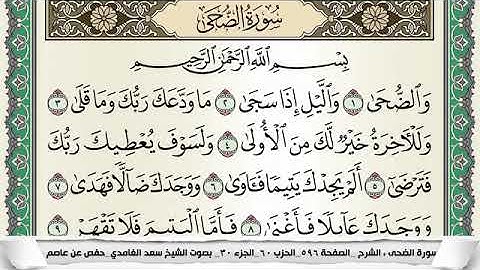 سُورَةُ الضُّحَىٰ
بِسْمِ اللَّهِ الرَّحْمَٰنِ الرَّحِيمِ
وَالضُّحَىٰ ١ وَاللَّيْلِ إِذَا سَجَىٰ ٢ مَا وَدَّعَكَ رَبُّكَ وَمَا قَلَىٰ ٣
وَلَلْآخِرَةُ خَيْرٌ لَّكَ مِنَ الْأُولَىٰ ٤ وَلَسَوْفَ يُعْطِيكَ رَبُّكَ
فَتَرْضَىٰ ٥ أَلَمْ يَجِدْكَ يَتِيمًا فَآوَىٰ ٦ وَوَجَدَكَ ضَالًّا فَهَدَىٰ ٧
وَوَجَدَكَ عَائِلًا فَأَغْنَىٰ ٨ فَأَمَّا الْيَتِيمَ فَلَا تَقْهَرْ ٩
سورة الضحى ، الشرح _ الصفحة ٥٩٦_ الحزب ٦٠_ الجزء ٣٠_ بصوت الشيخ سعد الغامدي_ حفص عن عاصم